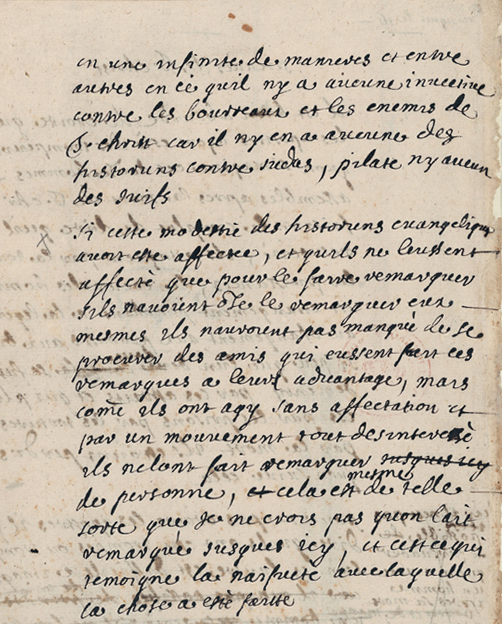 en une infinité de manieres et entre
autres en ce quil ny a aucune invective
contre les bourreaux et les enemis de
J. christ car il ny en a aucune des
historiens contre judas, pilate ny aucun
des Juifs
Si cette modestie des historiens evangelique
avoit esté affectée, et quils ne leussent
affecté que pour le faire remarquer
sils navoient osé le remarquer eux
mesmes ils nauroient pas manqué de se
procurer des amis qui eussent fait ces
remarques a leur advantage, mais
come ils ont agy sans affectation et
par un mouvement tout desinteressé
ils ne lont fait remarquer jusques icy
de personne, et cela est mesme de telle
sorte que Je ne crois pas quon lait
remarqué jusques icy, et cest ce qui
temoigne la naifueté avec laquelle
la chose a esté faitte